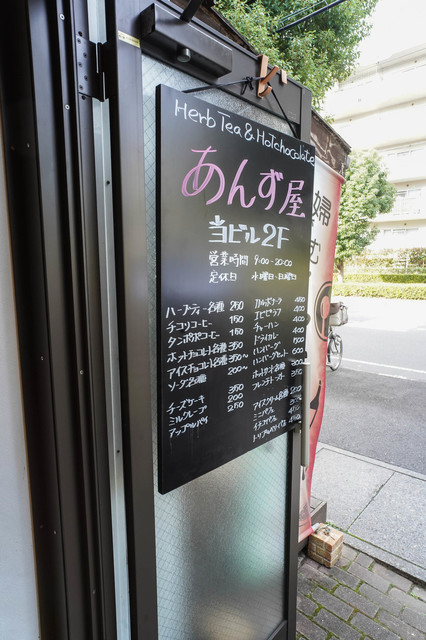 Herb Tea & Hotchocolate
あんず屋
当ビル2F
営業時間 9:00-20:00
定休日 水曜日・日曜日
ハーブティー各種 250
チコリコーヒー 150
タンポポコーヒー 150
ホットチョコレート各種 350
アイスチョコレート各種 350~
ソーダ各種 200~
チーズケーキ 350
ミルクレープ 200
アップルパイ 250
カルボナーラ 450
エビピラフ 400
チャーハン 400
ドライカレー 400
ハンバーグ 500
ハンバーグセット
ホットサンド各種
フレンチトースト
アイスクリーム各種
ミニパフェ
イチゴパフェ
婦
む